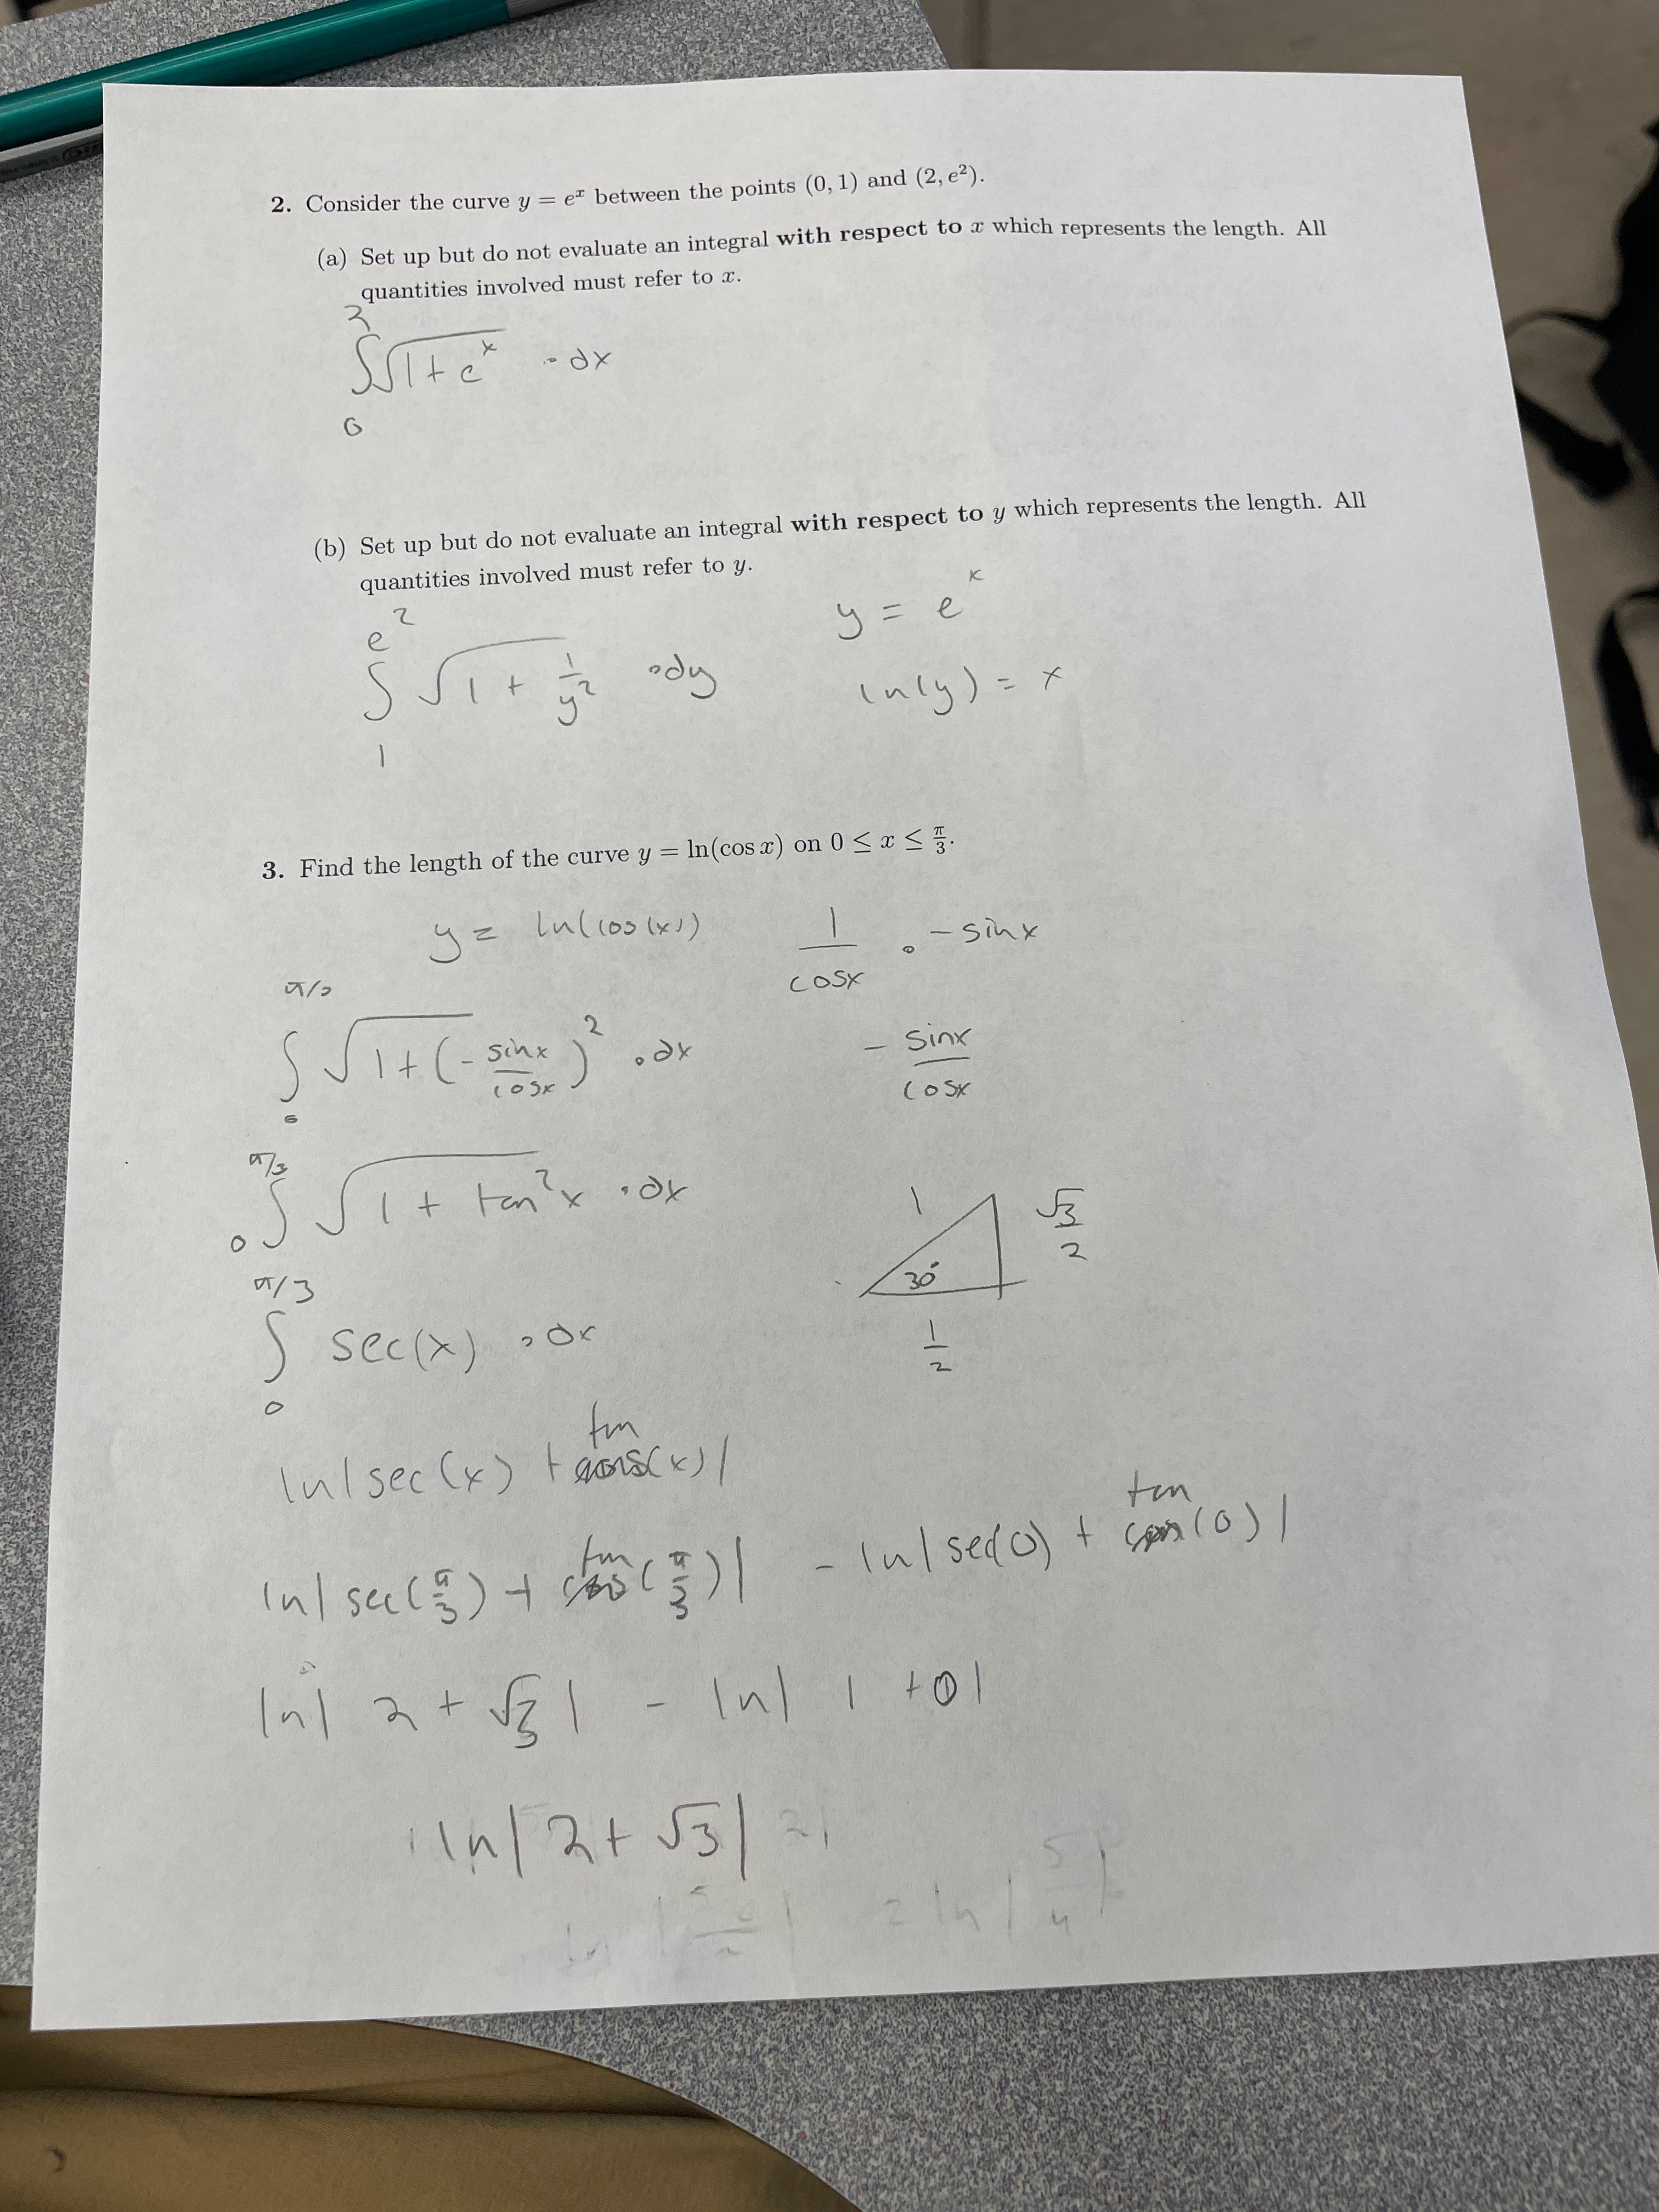 2. Consider the curve y = e^x between the points (0, 1) and (2, e²).
(a) Set up but do not evaluate an integral with respect to x which represents the length. All
quantities involved must refer to x.
∫₀² √(1+e^x) · dx
(b) Set up but do not evaluate an integral with respect to y which represents the length. All
quantities involved must refer to y.
y = e^x
∫₁^(e²) √(1 + 1/y²) · dy
ln(y) = x
3. Find the length of the curve y = ln(cos x) on 0 ≤ x ≤ π/3.
y = ln(cos(x))
1/cosx · -sinx
∫₀^(π/3) √(1+(-sinx/cosx)²) · dx
- sinx/cosx
∫₀^(π/3) √(1 + tan²x) · dx
1
√3/2
30°
1/2
∫₀^(π/3) sec(x) · dx
ln|sec(x) + tan(x)|
ln|sec(π/3) + tan(π/3)| - ln|sec(0) + tan(0)|
ln|2 + √3| - ln|1 + 0|
ln|2 + √3|